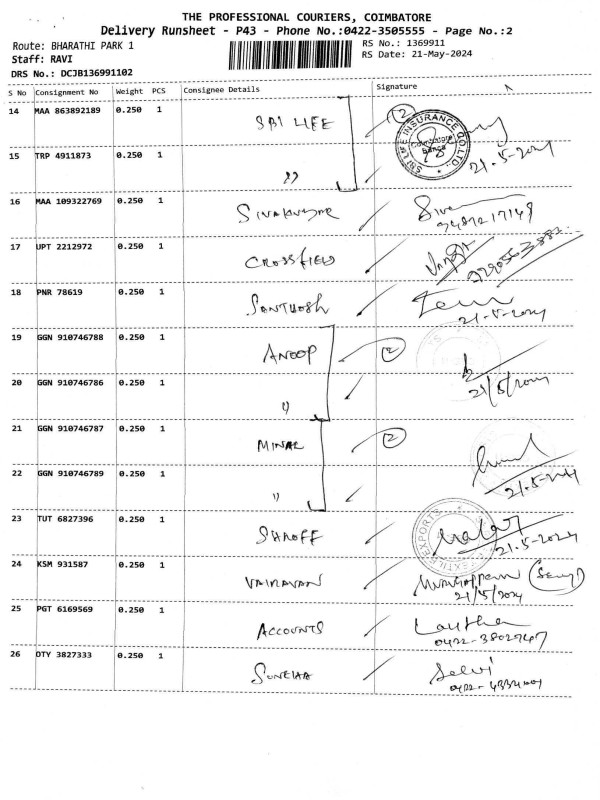 THE PROFESSIONAL COURIERS, COIMBATORE
Delivery Runsheet - P43 - Phone No.:0422-3505555 - Page No.:2
Route: BHARATHI PARK 1
RS No.: 1369911
Staff: RAVI
RS Date: 21-May-2024
DRS No.: DCJB136991102
S No Consignment No Weight PCS Consignee Details Signature
14 MAA 863892189 0.250 1 SRI LIFE 2
SRI LIFE INSURANCE CO LTD. Coimbatore
15 TRP 4911873 0.250 1 " 21.5-2024
16 MAA 109322769 0.250 1 SIVAKUMAR Siva
17 UPT 2212972 0.250 1 CROSSFIELD
18 PNR 78619 0.250 1 SANTHOSH
21-5-2024
19 GGN 910746788 0.250 1 ANOOP 2
20 GGN 910746786 0.250 1 " 21/5/2024
21 GGN 910746787 0.250 1 MINAR 2
22 GGN 910746789 0.250 1 " 21.5-2024
23 TUT 6827396 0.250 1 SHROFF
TEXTILE EXPORTS
21.5-2024
24 KSM 931587 0.250 1 VAIRAVAN
21/5/2024
25 PGT 6169569 0.250 1 ACCOUNTS
26 DTY 3827333 0.250 1 Selvi